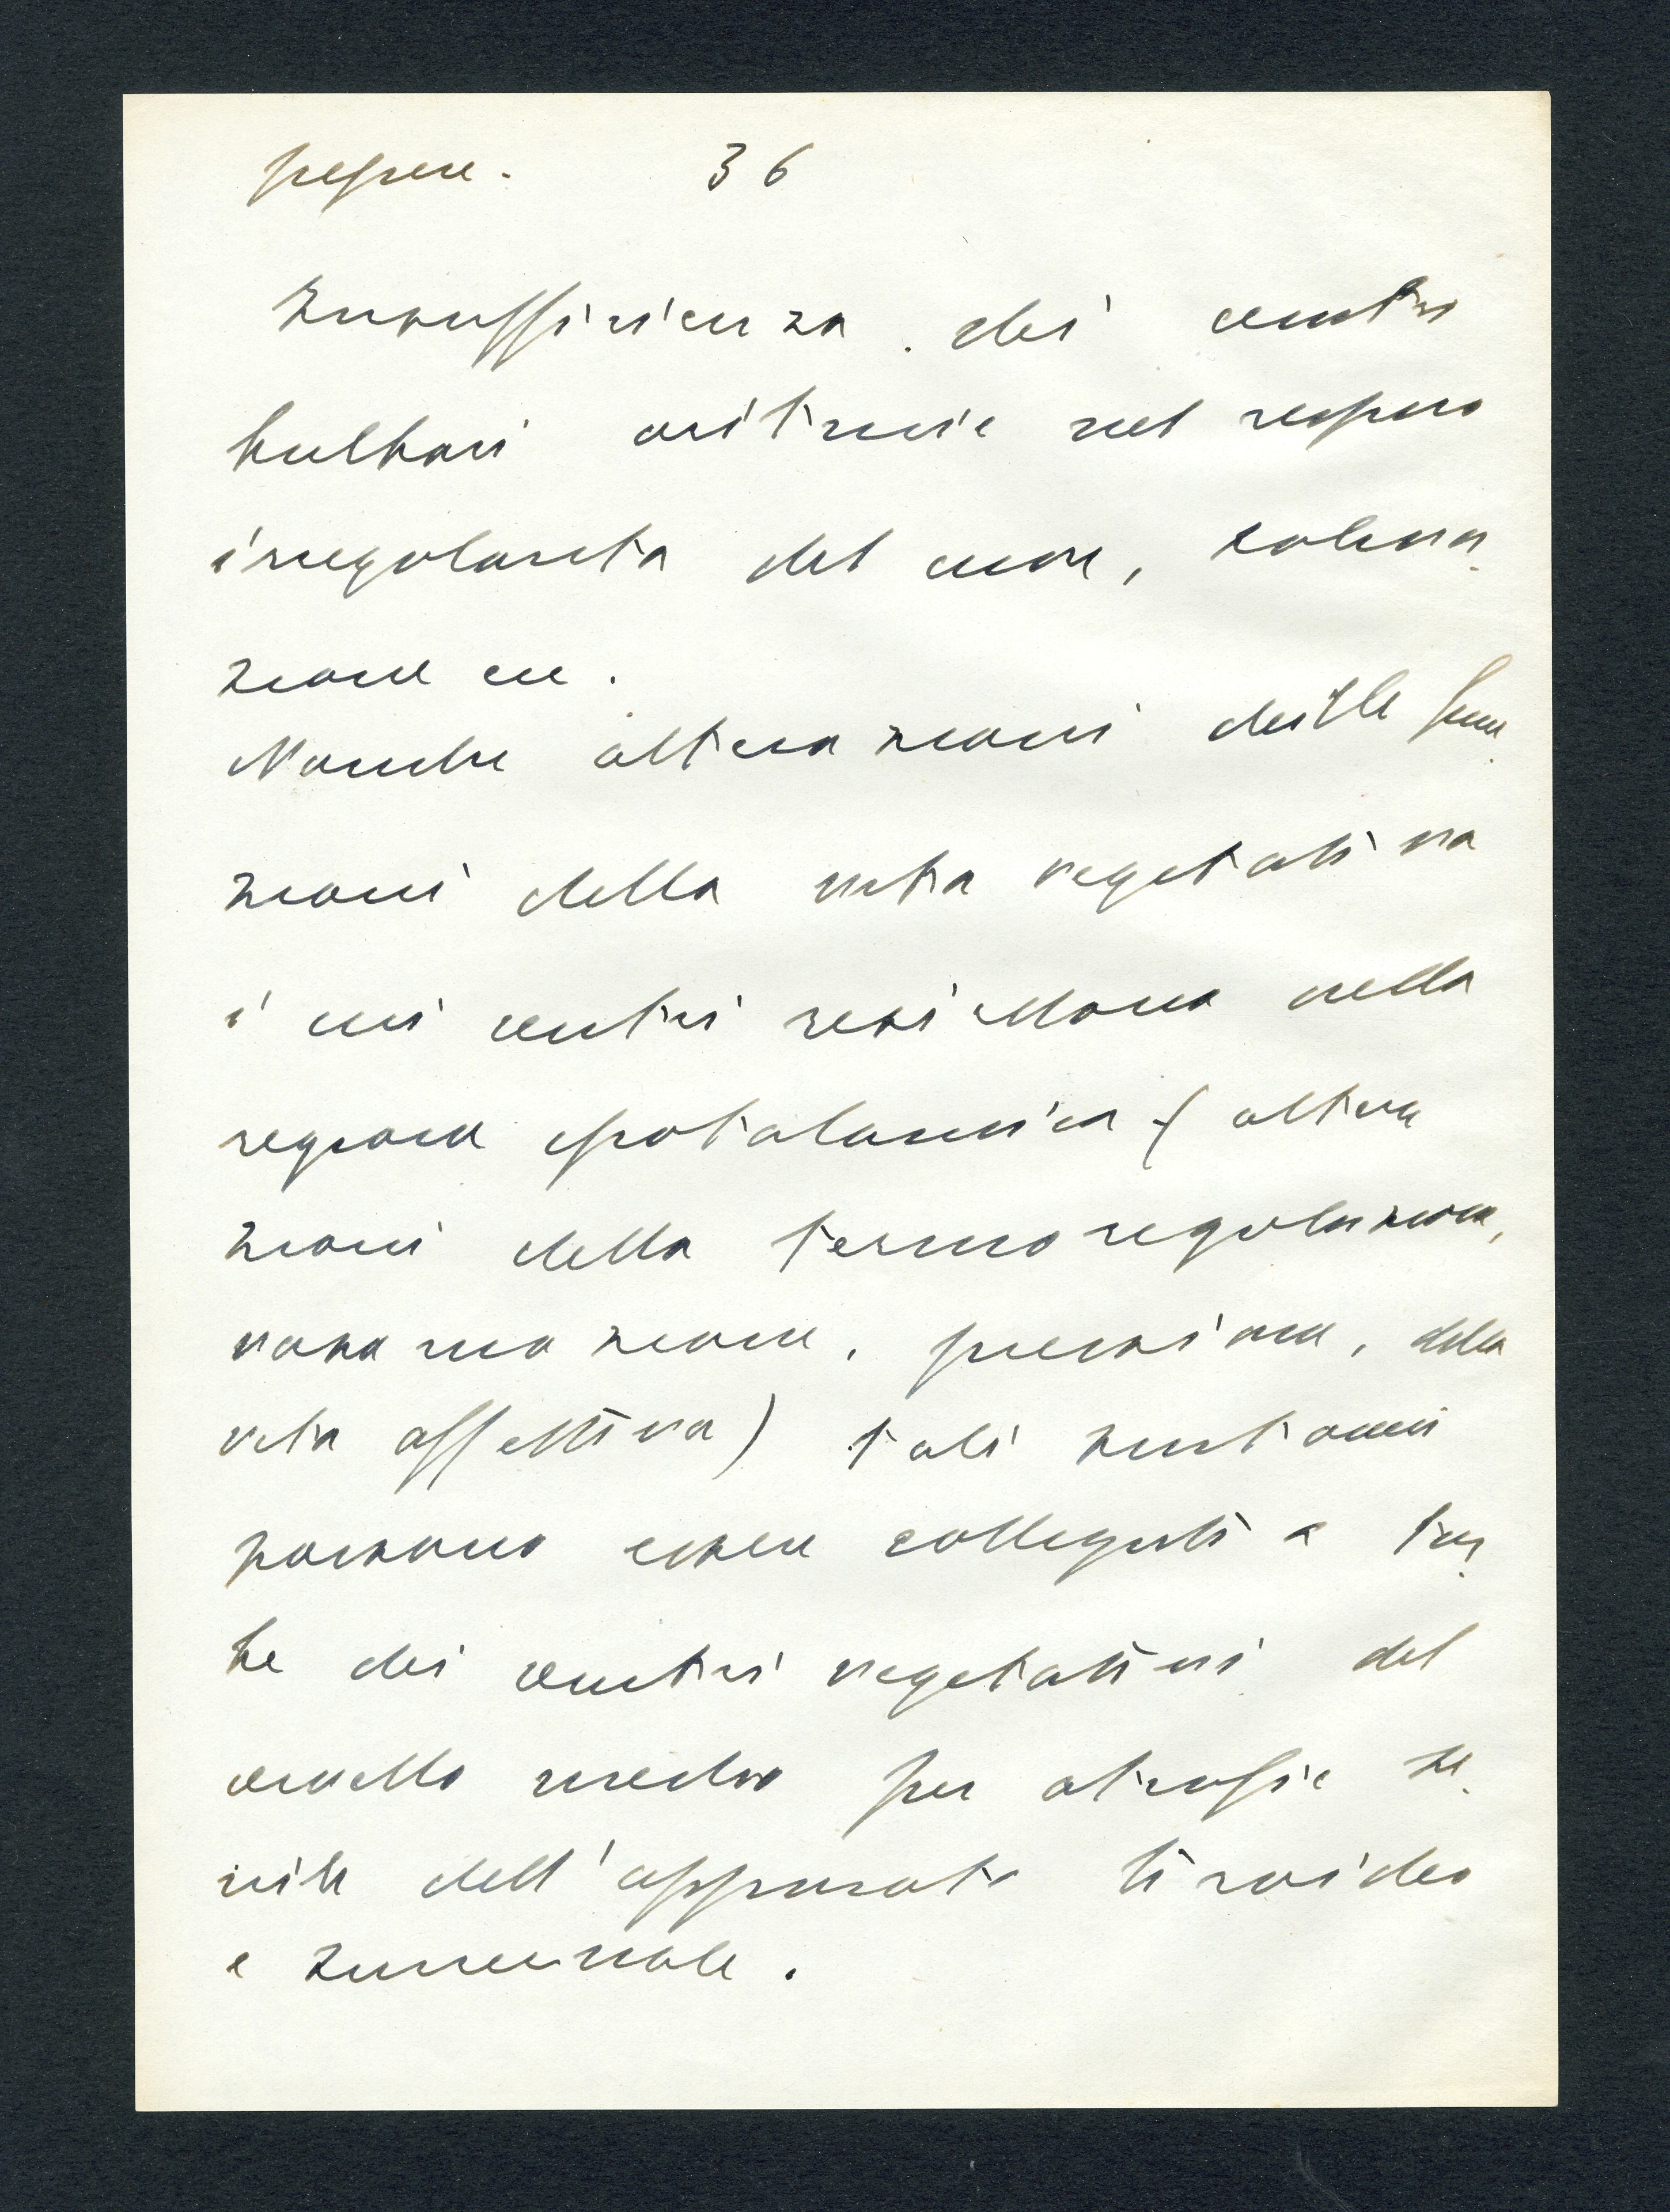 36
Insufficienza dei centri
bulbari aritmie nel respiro
irregolarità del cuore, saliva
zione ecc.
Nonche alterazioni delle fun
zioni della vita vegetativa
i cui centri resiedono nella
regione ipotalamica (altera
zioni della termoregolazione,
vasomozione, pressione, della
vita affettiva) tali sintomi
possono essere collegati a tur
be dei centri vegetativi del
cervello medio per atrofie se
nile dell'apparato tiroideo
e surrenale.